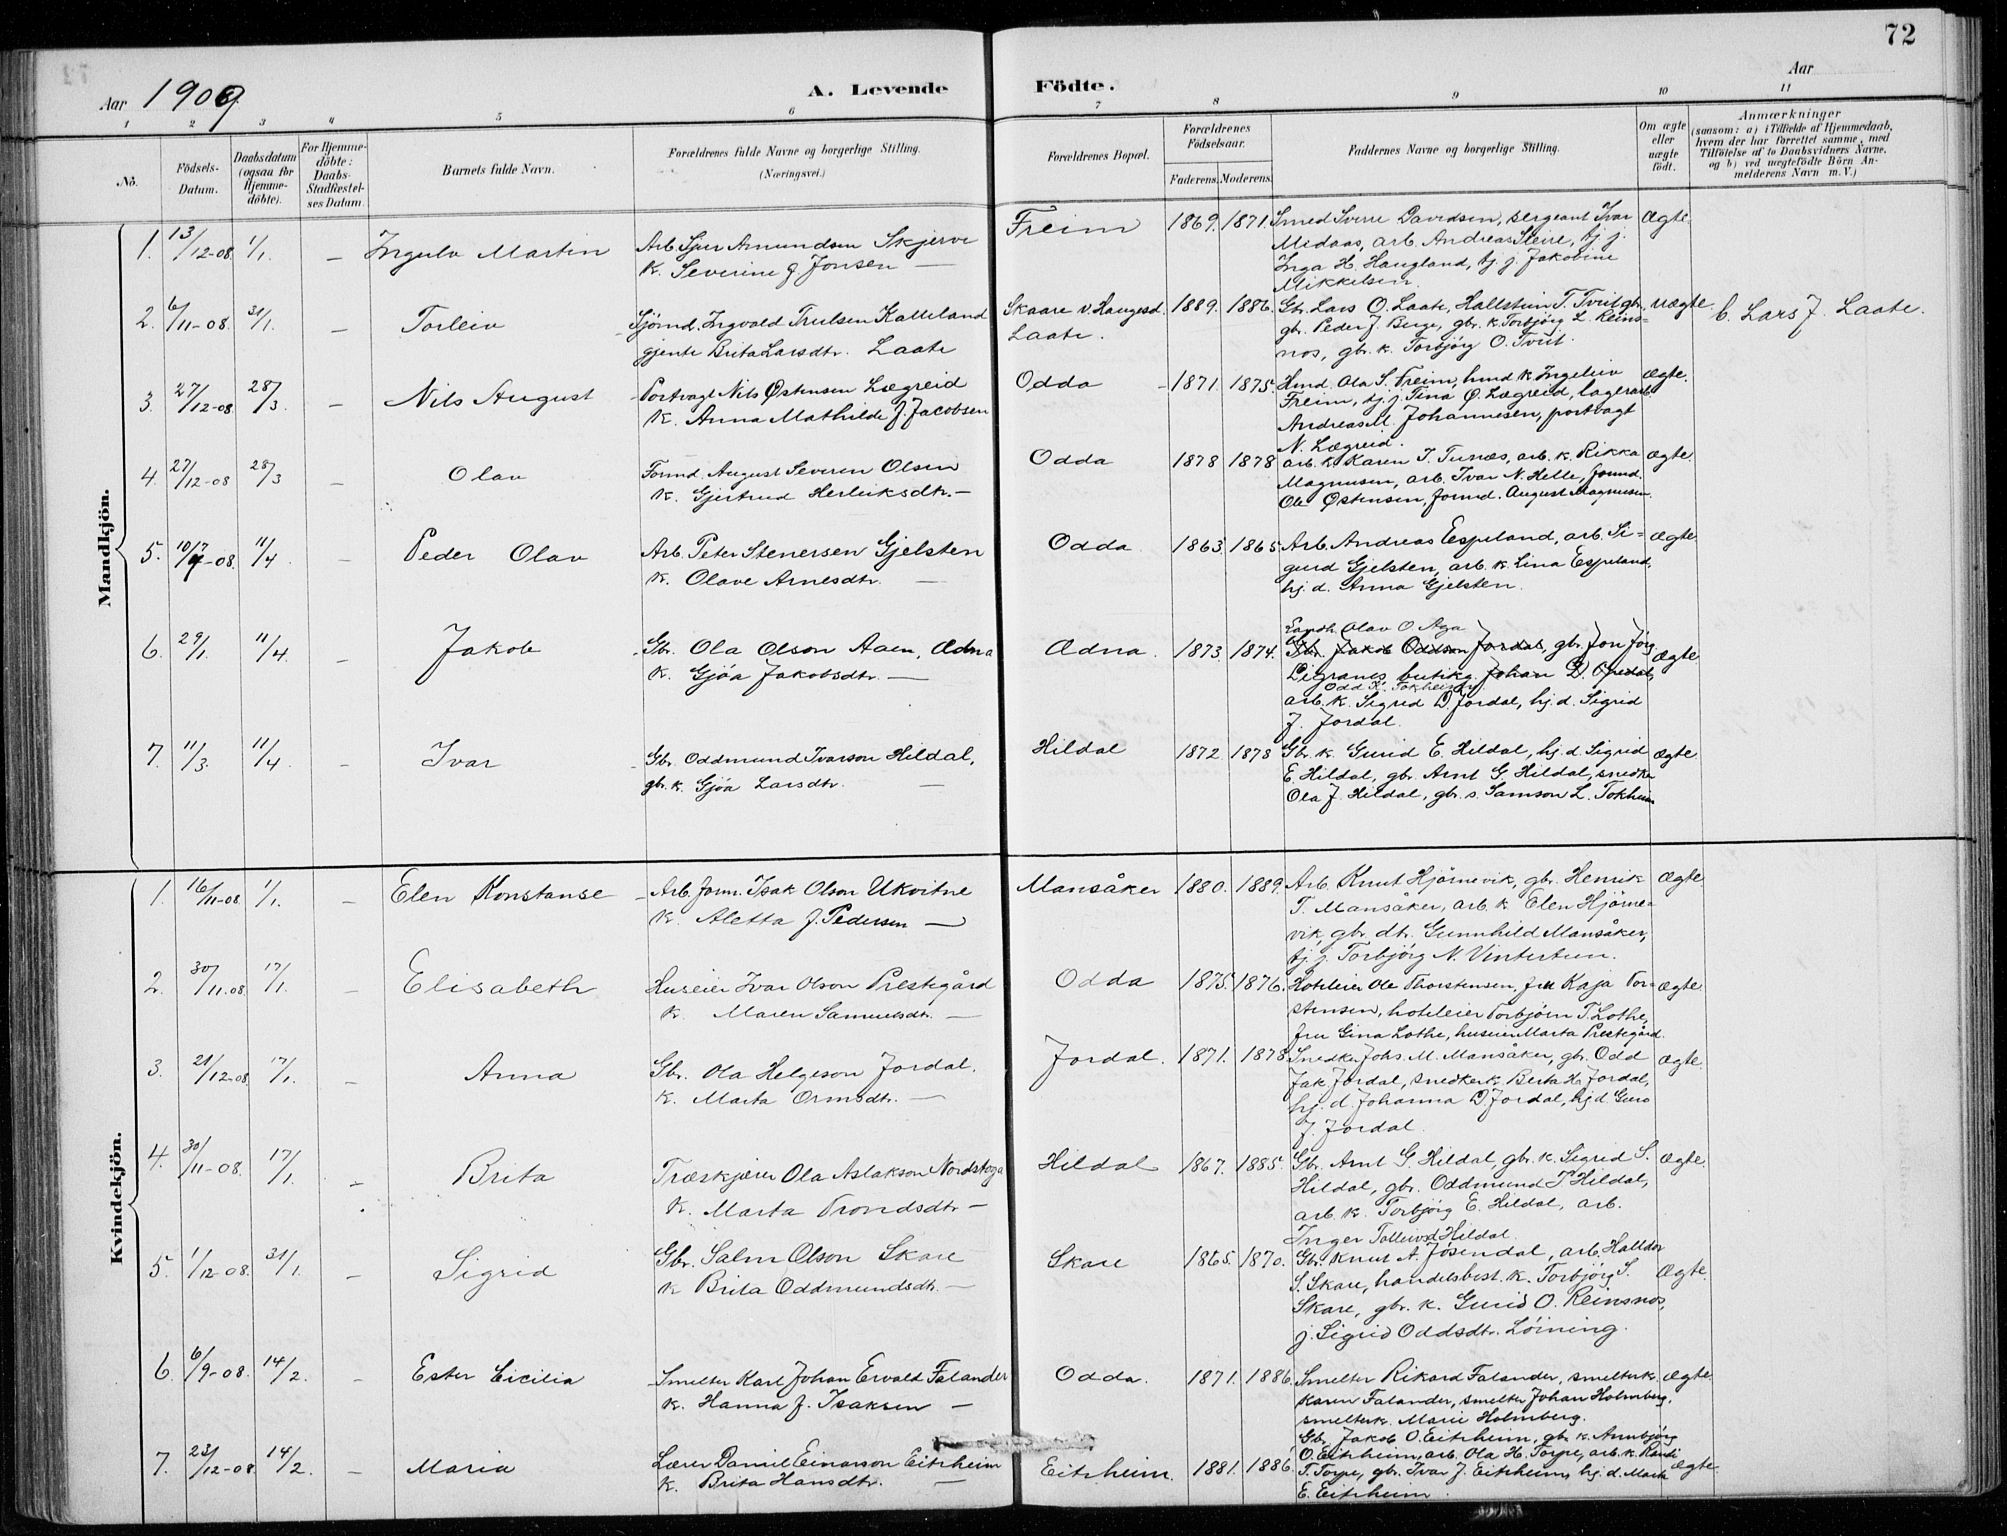 72
Aar 1909
A. Levende Födte.
Aar
1 2 3 4 5 6 7 8 9 10 11
No.
Födsels-Datum.
Daabsdatum (ogsaa for Hjemme-döbte).
For Hjemme-döbte: Daabs-Stadfæstel-ses Datum.
Barnets fulde Navn.
Forældrenes fulde Navne og borgerlige Stilling. (Næringsvei.)
Forældrenes Bopæl.
Forældrenes Födselsaar.
Faderens. Moderens.
Faddernes Navne og borgerlige Stilling.
Om ægte eller uægte födt.
Anmærkninger
(saasom: a) i Tilfælde af Hjemmedaab, hvem der har forrettet samme, med Tilföielse af to Daabsvidners Navne, og b) ved uægtefödte Börn An-melderens Navn m. V.)
Mandkjön.
1. 13/12-08. 1/1. – Ingulv Martin
Arb. Sjur Amundsen Skjerve
k. Severine f. Jonsen —
Freim 1869. 1871.
Smed Sverre Davidsen, sergeant Ivar
Midaas, arb. Andreas Steire, tj. j.
Inga H. Haugland, tj. j. Jakobine
Mikkelsen.
Ægte
2. 6/11-08. 31/1. – Torleiv
Sjömd. Ingvald Trulsen Kalleland
gjente Brita Larsdtr. Laate
Skaare v. Haugesd.
Laate.
1889. 1886.
Gbr. Lars O. Laate, Hallstein T. Tveit gbr.
gbr. Peder J. Berge, gbr. k. Torbjörg L. Reins-
nos, gbr. k. Torbjörg O. Tveit.
uægte
b. Lars J. Laate.
3. 27/12-08. 28/3. – Nils August
Portvagt Nils Østensen Lægreid
k. Anna Mathilde f. Jacobsen
Odda 1871. 1875.
Hmd. Ola S. Freim, hmd. k. Ingeleiv
Freim, tj. j. Tina Ø. Lægreid, lagerarb.
Andreas M. Johannesen, portvagt
N. Lægreid.
ægte.
4. 27/12-08 28/3 – Olav
Formd. August Severin Olsen
k. Gjertrud Herleiksdtr. —
Odda 1878 1878
arb. k. Karen I. Tunæs, arb. k. Rikka
Magnusen, arb. Ivar N. Helle, formd.
Ole Østensen, formd. August Magnusen.
ægte.
5. 10/7-08. 11/4. – Peder Olav
Arb. Peter Stenersen Gjelsten
k. Olave Arnesdtr. —
Odda 1863. 1865.
Arb. Andreas Espeland, arb. Si-
gurd Gjelsten, arb. k. Lina Espeland,
hj. d. Anna Gjelsten.
ægte
6. 29/1. 11/4. – Jakob
Gbr. Ola Olson Aaen, Ædna
k. Gjöa Jakobsdtr. —
Ædna. 1873. 1874.
Landh. Olav O Aga
Gbr. Jakob Oddson Jordal, gbr. Jon Jörg
Digranes, butikg. Johan D. Opedal,
Odd K. Tokheim,
arb. k. Sigrid D. Jordal, hj. d. Sigrid
J. Jordal.
Ægte
7. 11/3. 11/4. – Ivar
Gbr. Oddmund Ivarson Hildal,
gbr. k. Gjöa Larsdtr. —
Hildal 1872 1878
Gbr. k. Gurid E. Hildal, hj. d. Sigrid
E. Hildal, gbr. Arnt G. Hildal, snedker
Ola J. Hildal, gbr. s. Samson L. Tokheim
ægte
Kvindekjön.
1. 16/11-08. 1/1. – Elen Konstanse
Arb. form. Isak Olson Ukvitne
k. Aletta f. Pedersen —
Mansåker 1880. 1889.
Arb. Knut Hjörnevik, gbr. Henrik
T. Mansåker, arb. k. Elen Hjörne-
vik, gbr. dtr. Gunnhild Mansåker,
tj. j. Torbjörg N. Vintertun.
Ægte
2. 30/11-08. 17/1. – Elisabeth
Huseier Ivar Olson Prestegård
k. Maren Samuelsdtr. —
Odda 1875. 1876.
Hoteleier Ole Thorstensen, fru Kaja Tor-
stensen, hoteleier Torbjörn T. Lothe,
fru Gina Lothe, huseier Marta Prestegård.
ægte
3. 21/12-08. 17/1. – Anna
Gbr. Ola Helgeson Jordal.
k. Marta Ormsdtr. —
Jordal. 1871. 1878.
Snedker Johs. M. Mansåker, gbr. Odd
Jak. Jordal, snedker k. Berta H. Jordal,
hj. d. Johanna D. Jordal, hj. d. Guro
J. Jordal.
Ægte.
4. 30/11-08. 17/1. – Brita
Træskjærer Ola Aslakson Nordstoga
k. Marta Trondsdtr. —
Hildal 1867. 1885.
Gbr. Arnt G. Hildal, gbr. k. Sigrid S.
Hildal, gbr. Oddmund T. Hildal,
arb. k. Torbjörg E. Hildal, arb.
Inger Tolleivsd. Hildal.
Ægte.
5. 1/12-08. 31/1. – Sigrid
Gbr. Salm. Olson Skare
k. Brita Oddmundsdtr. —
Skare 1865. 1870.
Gbr. Knut A. Jösendal, arb. Halldor
S. Skare, handelsbest. k. Torbjörg S.
Skare, gbr. k. Gurid O. Reinsnos,
j. Sigrid Oddsdtr. Löining.
Ægte.
6. 6/9-08. 14/2. – Ester Cicilia
Smelter Karl Johan Ervald Falander
k. Hanna f. Isaksen —
Odda. 1871. 1886.
Smelter Rikard Falander, smelterk.
Karen Falander, smelter Johan Holmberg,
smelterk. Marie Holmberg.
ægte
7. 23/12-08. 14/2. – Maria
Lærer Daniel Einarson Eitrheim
k. Brita Hansdtr. —
Eitrheim. 1881. 1886.
Gbr. Jakob O. Eitrheim, gbr. k. Annbjörg
O. Eitrheim, arb. Ola H. Torpe, arb. k. Randi
T. Torpe, gbr. Ivar J. Eitrheim, hj. d. Marta
E. Eitrheim.
ægte